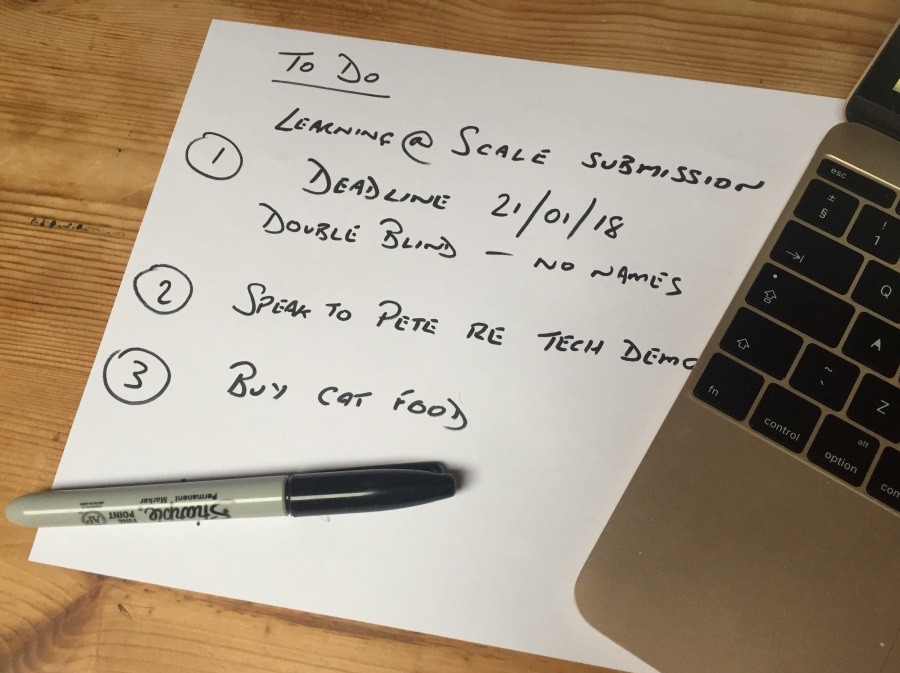 To Do
1 LEARNING @ SCALE SUBMISSION
DEADLINE 21/01/18
DOUBLE BLIND – NO NAMES
2 SPEAK TO PETE RE TECH DEMO
3 BUY CAT FOOD
Sharpie
FINE POINT
Permanent Marker
esc
± §
! 1
Q
A
~ `
Z
fn
control
alt option
com